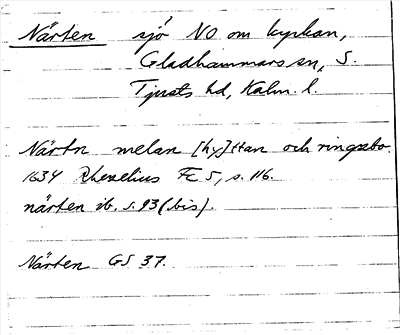 Närten sjö NO om kyrkan,
Gladhammars sn, S.
Tjusts hd, Kalm. l.
Närtn melan [hy]ttan och ringsbo.
1634 Rhezelius Fc 5, s. 116.
närten ib. s. 93 (bis).
Närten GS 37.